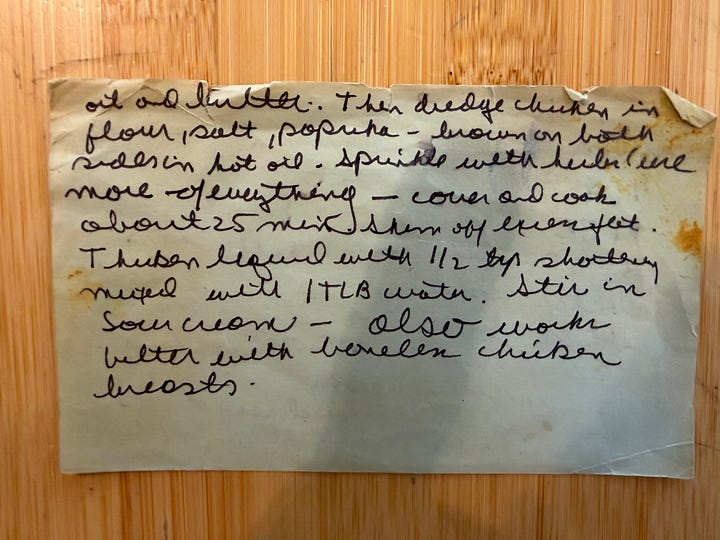 oil and butter. Then dredge chicken in
flour, salt, paprika - brown on both
sides in hot oil. Sprinkle with herbs (use
more of everything - cover and cook
about 25 min. Skim off excess fat.
Thicken liquid with 1/2 tsp
mixed with 1 TLB water. Stir in
Sour cream - also works
better with boneless chicken
breasts.